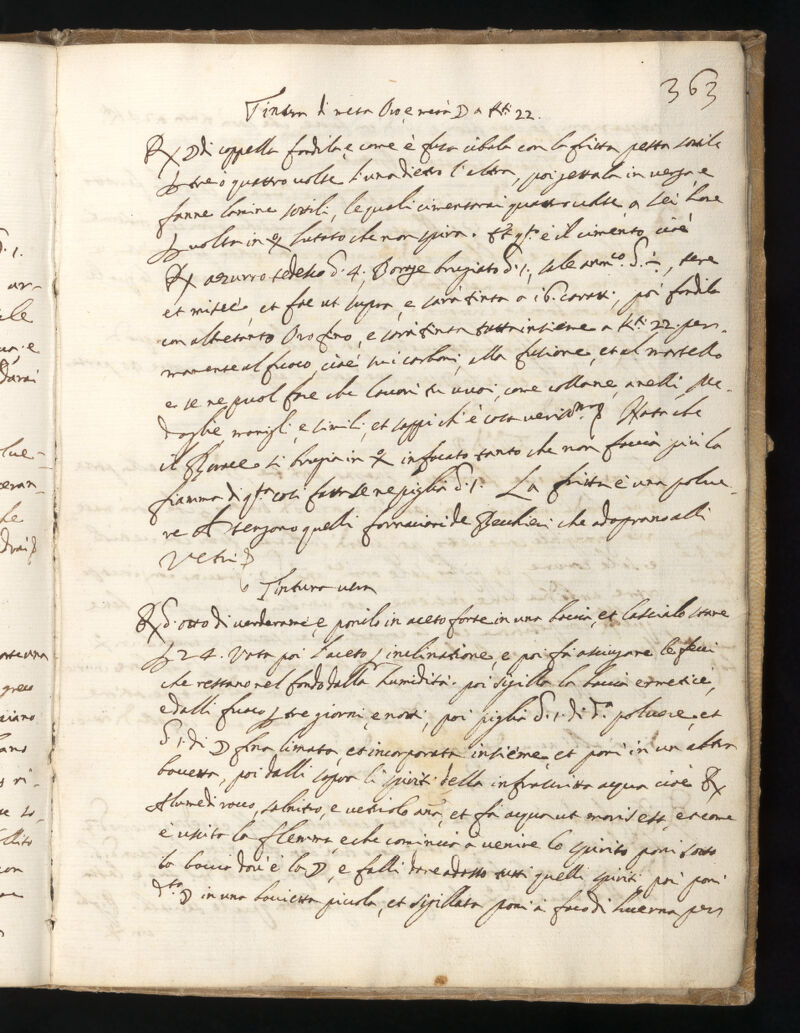 363
Tintura di meza Oro, e meza ☽ a K.ti 22.
℞ ☽ di coppella fondila, e come è fusa cibala con la fritta pesta sottile
tre o quattro volte l'una dietro l'altra, poi gettala in verga, e
fanne lamine sottili, le quali cimentarai quattro volte a sei hore
volta in lutato che non spira. Et q.to è il cimento, cioè
℞ azurro tedesco 4, Borace brugiato 1, sale arm.co, tere
et misce et fac ut supra, e sarà tinta a 16 caratti, poi fondila
con altretanto Oro fino, e sarà tinta tutta insieme a K.ti 22 per-
manente al fuoco, cioè sui carboni, alla fusione, et al martello
e se ne puol fare che lavori tu vuoi, come collane, anelli, Me-
daglie, manigli, e simili, et sappi ch'è cosa veriss.ma Nota che
il Borace si brugia in infocato tanto che non faccia più la
fiamma di q.ta così fatta se ne piglia 1. La fritta è una polve-
re che tengono quelli fornaciari de Bicchieri che adoprano alli
Vetri
Tintura vera
℞ otto di verderame, e ponilo in aceto forte in una boccia, et lascialo stare
24. Vota poi l'aceto inclinatione, e poi fà asciugare le feci
che restano nel fondo dalla humidità. poi sigilla la boccia ermeticè,
e dalli fuoco tre giorni, e notti, poi piglia 1. di d.a polvere, et
1. di ☽ fina limata, et incorporata insieme, et poni in un altra
boccetta, poi dalli sopra li spiriti della infrascritta acqua cioè ℞
Alume di roccho, salnitro, e vetriolo ana, et fà acqua ut moris est, e come
è uscita la flemma, e che comincia à venire lo spirito poni sotto
la boccia dov'è la ☽, e falli dare adosso tutti quelli spiriti poi poni
d.ta ☽ in una boccietta picola, et sigillata poni à foco di lucerna per